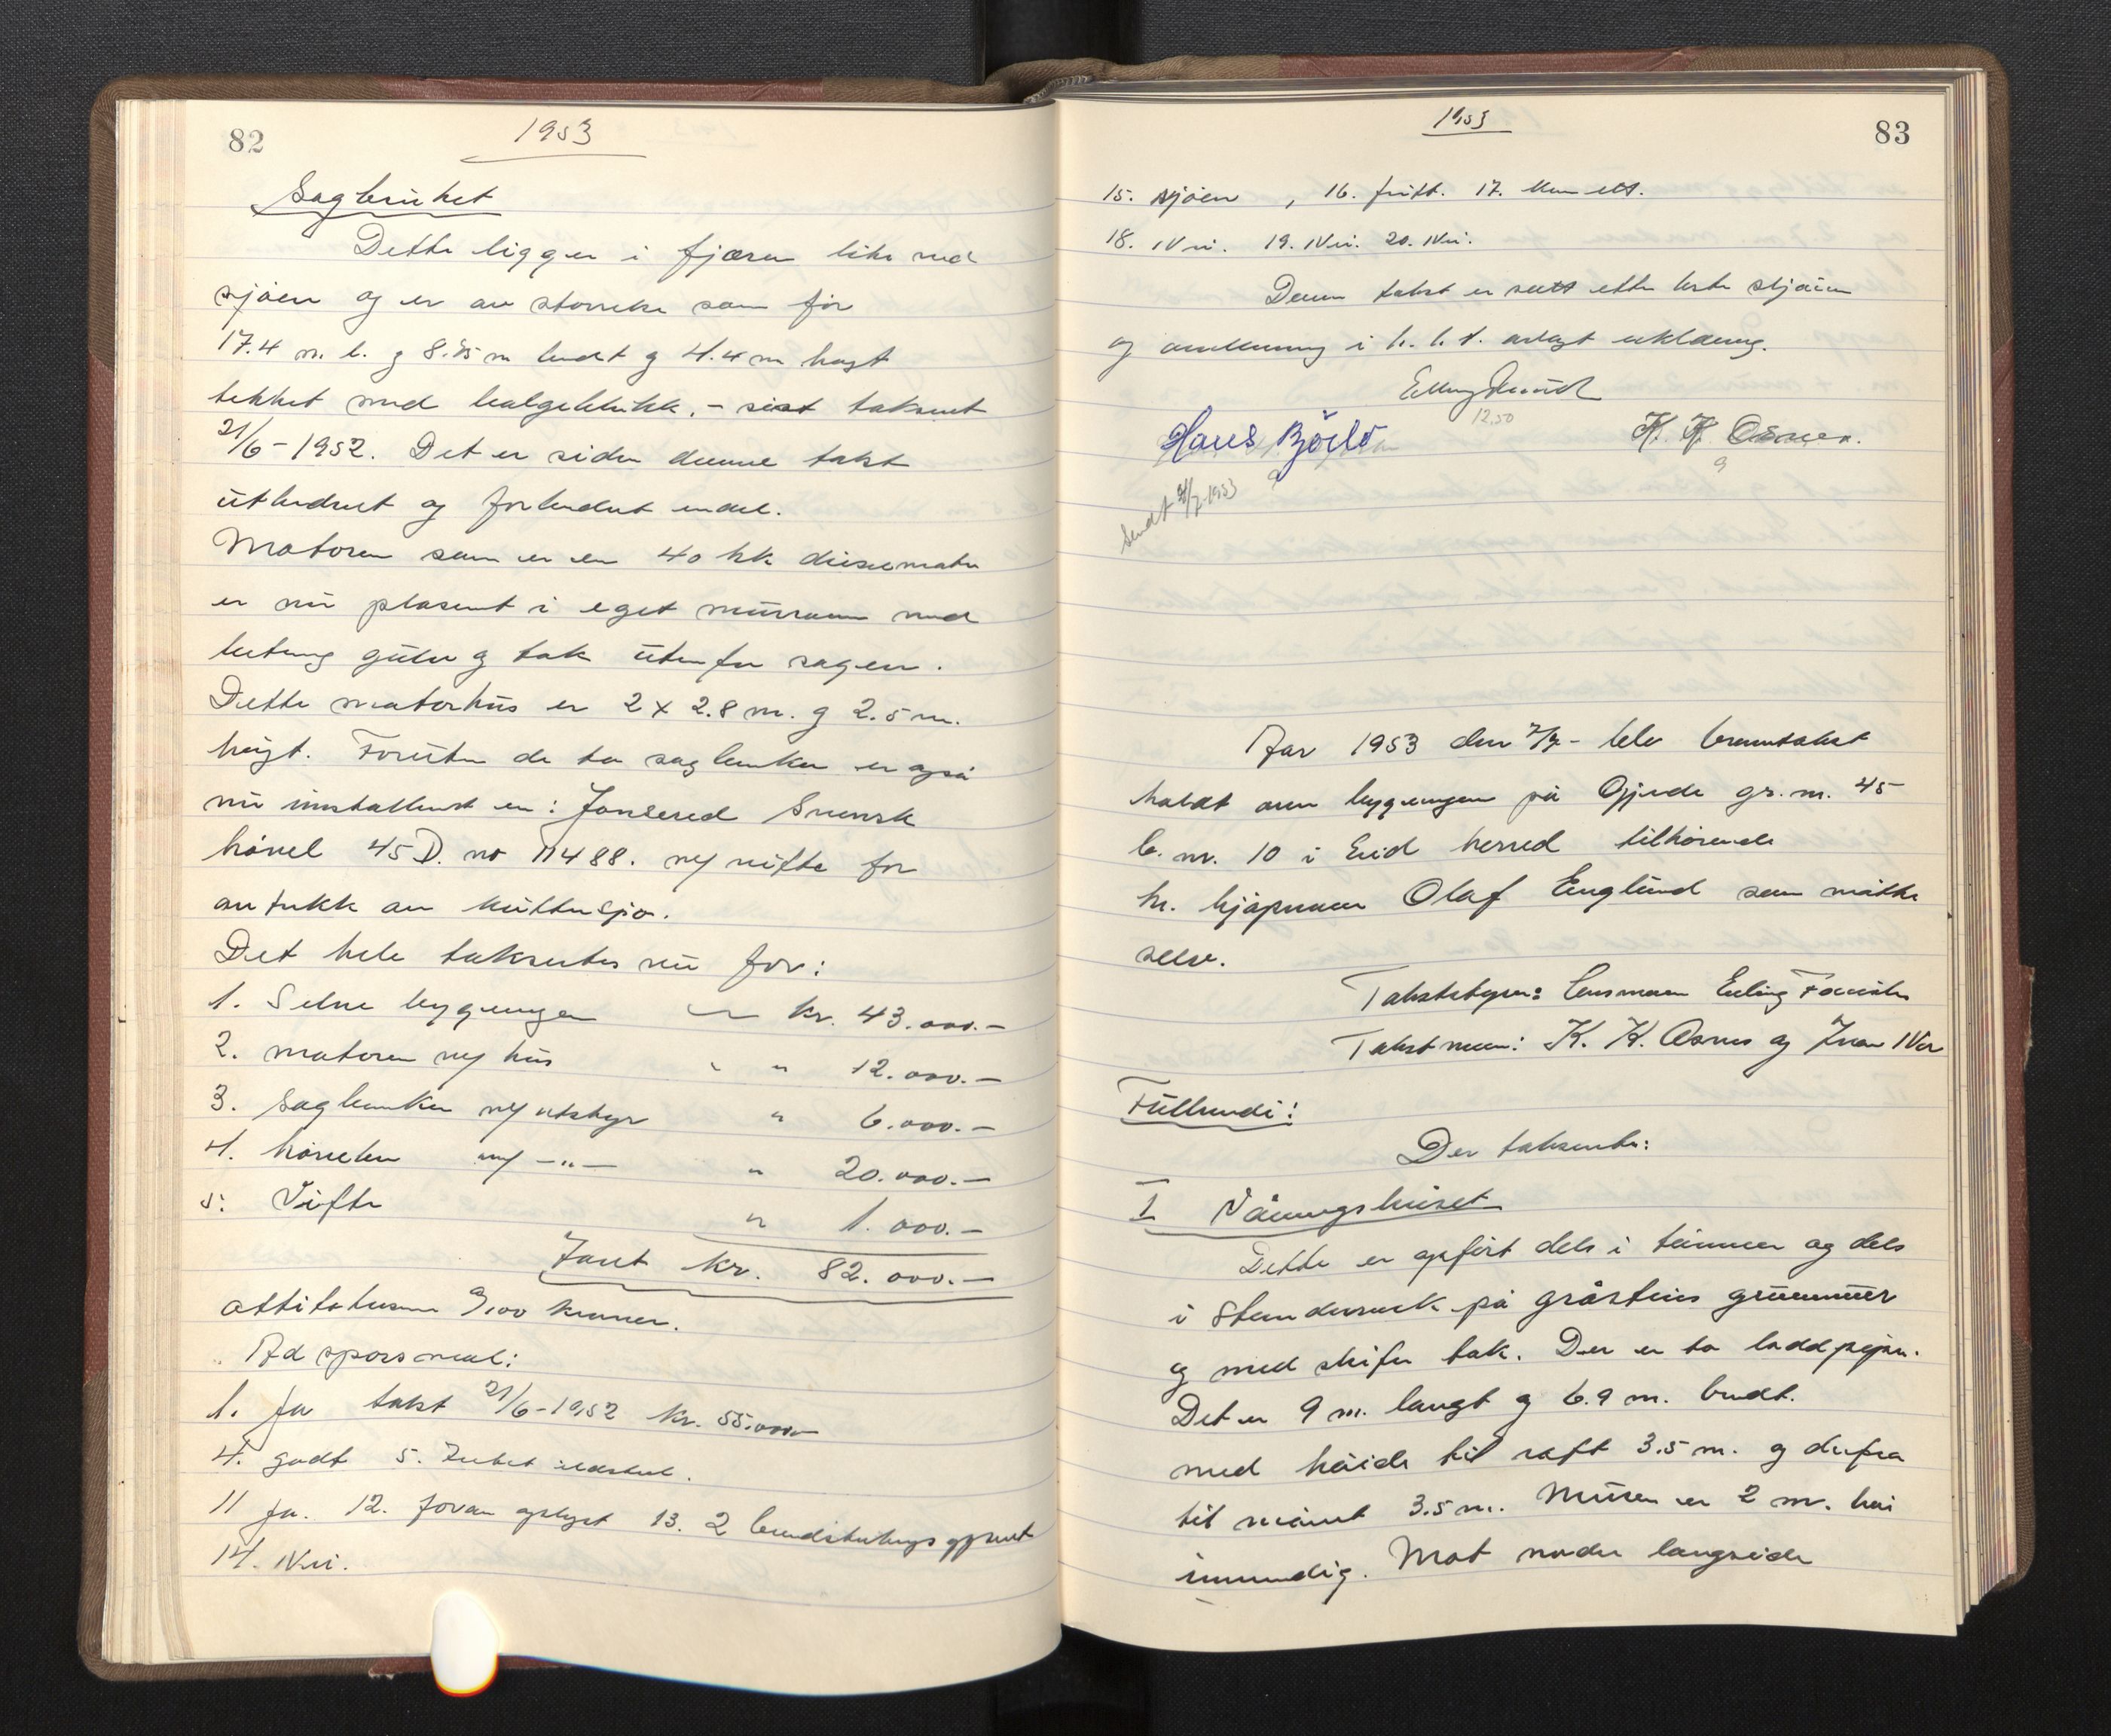 82
1953
Sagbruket
Dette ligger i fjæra like ved
sjøen og er av størrelse som før
17.4 m. l. og 8.85 m bredt og 4.4 m høgt
tekket med bølgeblikk. - sist taksert
21/6 - 1952. Det er siden denne takst
utbedret og forbedret endel.
Motoren som er en 40 hk diselmotor
er nu plasert i eget murrom med
betong gulv og tak utenfor sagen.
Dette motorhus er 2 x 2.8 m. og 2.5 m.
høgt. Foruten de to sagbenker er også
nu installert en: Jonsered Svensk
høvel 45 D. no 11488. ny vifte for
avtrekk av kutterspon.
Det hele takseres nu for:
1. Selve bygningen kr. 43.000.-
2. motoren m/ hus " " 12.000.-
3. Sagbenker m/ utstyr " 6.000.-
4. høvelen m/ -"- " 20.000.-
5: Vifte " 1.000.-
Taxt kr. 82.000.-
åttitotusen 0/00 kroner.
Ad spørsmål:
1. Ja takst 21/6 - 1952 kr. 55.000.-
4. godt 5. Intet ildsted.
11 Ja. 12. foran oplyst 13. 2
14. Nei.
1953
83
15. sjøen , 16. fritt. 17. Kun ett.
18. Nei. 19. Nei. 20. Nei.
Denne takst er satt etter beste skjønn
og i h. h. t. avlagt erklæring.
12.50
Hans
K. K. Osnes.
9
9
Sendt 7/7-1953
Aar 1953 den 7/7- blev branntakst
holdt over bygningen på Gjerde gr. nr. 45
b. nr. 10 i Eid herred tilhørende
hr. kjøpmann Olaf Englund som møtte
selv.
Takstbestyrer: lensmann Erling
Takstmenn: K. K. Osnes og Ivar Nes
Fullverdi:
Der takseres:
I Våningshuset
Dette er opført dels i tømmer og dels
i stenderverk på gråsteins grunnmur
og med skifer tak. Der er to
Det er 9 m. langt og 6.9 m. bredt.
med høide til raft 3.5 m. og derfra
til mønet 3.5 m. Muren er 2 m. høi
innvendig. Mot nordre langside